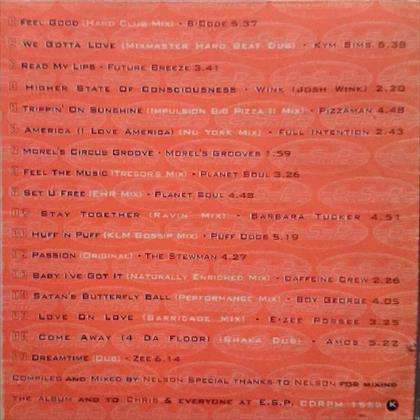 Feel Good (Hard Club Mix) • B Code 5.37
We Gotta Love (Mixmaster Hard Beat Dub) • Kym Sims 5.39
Read My Lips • Future Breeze 3.41
Higher State Of Consciousness • Wink (Josh Wink) 2.20
Trippin' On Sunshine (Impulsion Big Pizza II Mix) • Pizzaman 4.48
America (I Love America) (Nu York Mix) • Full Intention 2.43
Morel's Circus Groove • Morel's Grooves 1.59
Feel The Music (Tresor's Mix) • Planet Soul 3.26
Set U Free (EHR Mix) • Planet Soul 4.48
Stay Together (Ravin Mix) • Barbara Tucker 4.51
Huff'n Puff (KLM Gossip Mix) • Puff Dogs 5.19
Passion (Original) • The Stewman 4.27
Baby I've Got It (Naturally Enriched Mix) • Caffeine Crew 2.26
Satan's Butterfly Ball (Performance Mix) • Boy George 4.05
Love On Love (Barricade Mix) • E-Zee Possee 3.25
Come Away (4 Da Floor) (Shaka Dub) • Amos 5.22
Dreamtime (Dub) • Zee 6.14
Compiled and Mixed by Nelson Special thanks to Nelson for mixing
the album and to Chris & everyone at E.S.P. CDRPM 1559 K